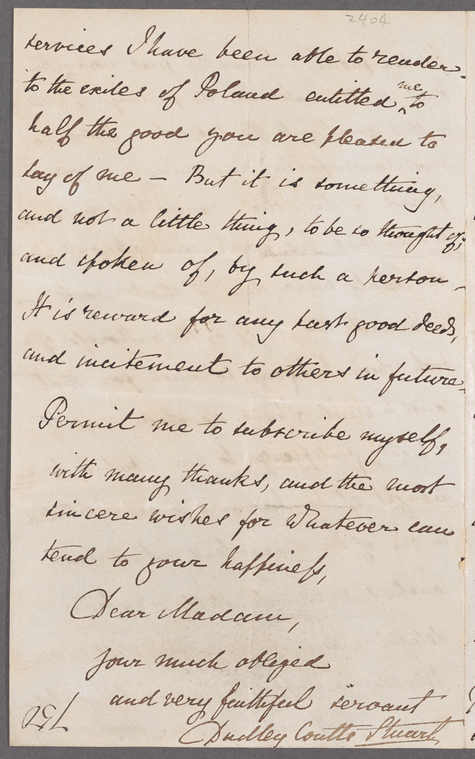 2404
services I have been able to render
to the exiles of Poland entitled me to
half the good you are pleased to
say of me — But it is something,
and not a little thing, to be so thought of,
and spoken of, by such a person —
It is reward for any past good deeds,
and incitement to others in future.
Permit me to subscribe myself,
with many thanks, and the most
sincere wishes for whatever can
tend to your happiness,
Dear Madam,
your much obliged
and very faithful servant
Dudley Coutts Stuart